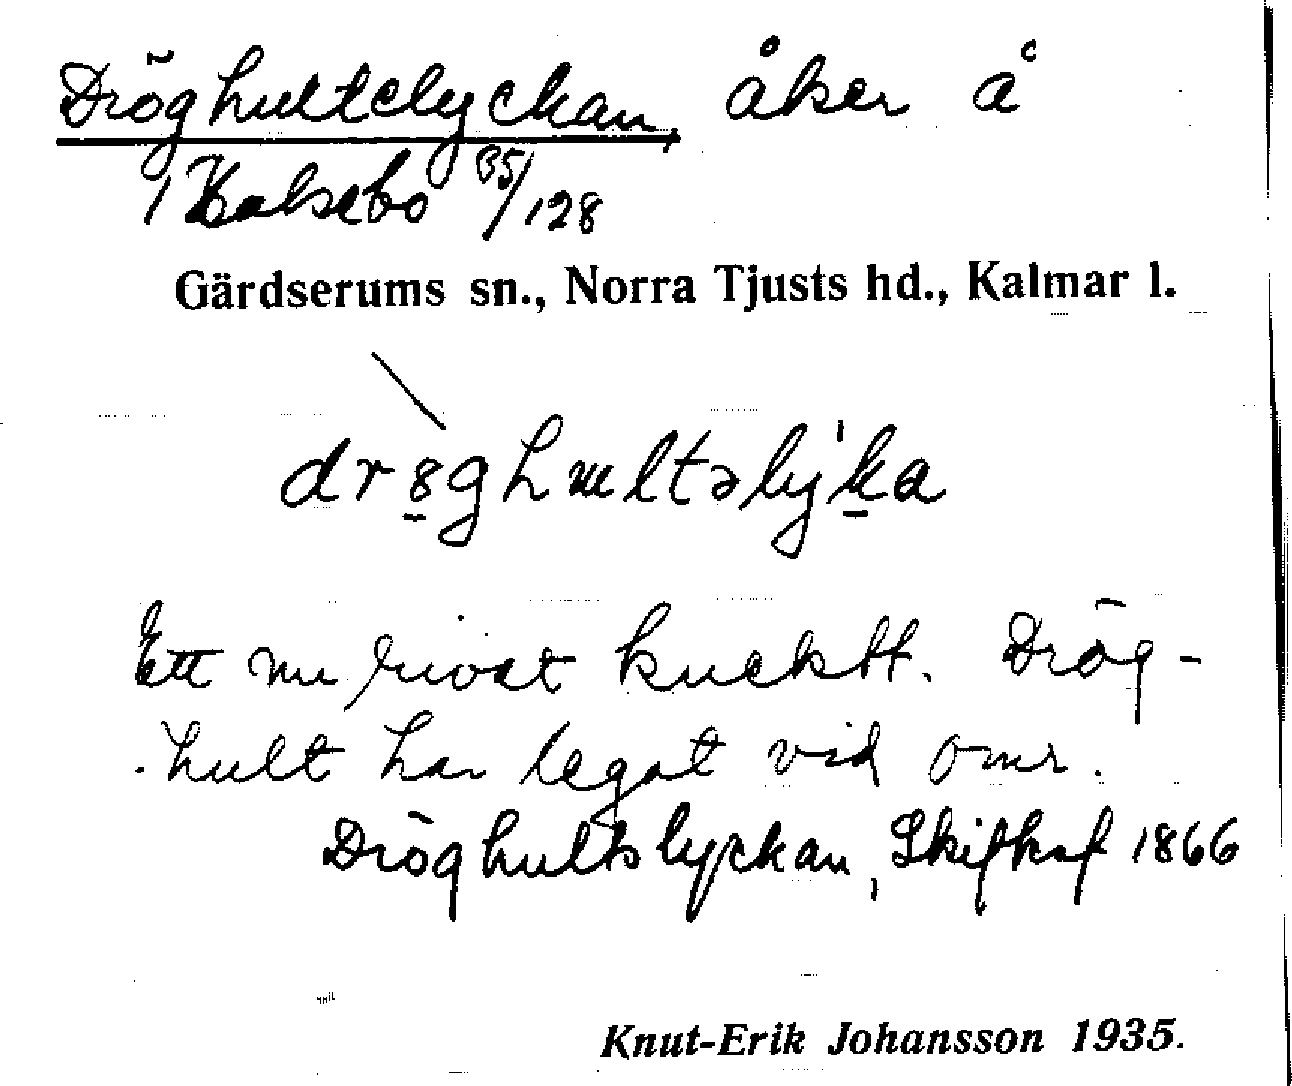 Dröghultelyckan, åker å
Kaksebo 35/128
Gärdserums sn., Norra Tjusts hd., Kalmar l.
Ett nu rivet knektt. Drög-
hult har legat vid omr.
Dröghultslyckan, Skifksf 1866
Knut-Erik Johansson 1935.